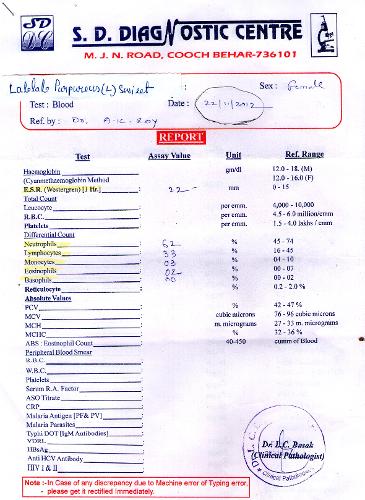 SD DC S. D. DIAGNOSTIC CENTRE
M. J. N. ROAD, COOCH BEHAR-736101
Lablab Purpureus (L) Sweet : Sex : Female
Test : Blood Date : 22/11/2012
Ref. by : Dr. A. K. Roy
REPORT
Test Assay Value Unit Ref. Range
Haemoglobin gm/dl 12.0 - 18. (M)
(Cyanmethaemoglobin Method 12.0 - 16.0 (F)
E.S.R. (Westergren) [1 Hr.] : 22 mm 0 - 15
Total Count
Leucocyte : per emm. 4,000 - 10,000
R.B.C. : per emm. 4.5 - 6.0 million/cmm
Platelets : per emm. 1.5 - 4.0 lakhs / cmm
Differential Count
Neutrophils : 62 % 45 - 74
Lymphocytes : 33 % 16 - 45
Monocytes : 03 % 04 - 10
Eosinophils : 02 % 00 - 07
Basophils : 00 % 00 - 02
Reticulocyte : % 0.2 - 2.0 %
Absolute Values
PCV : % 42 - 47 %
MCV : cubic microns 76 - 96 cubic microns
MCH : m. micrograms 27 - 33 m. micrograms
MCHC : % 32 - 36 %
ABS : Eosinophil Count : 40-450 cumm of Blood
Peripheral Blood Smear
R.B.C. :
W.B.C. :
Platelets :
Serum R.A. Factor :
ASO Titrate :
CRP :
Malaria Antigen [PF& PV] :
Malaria Parasites :
Typhi DOT [IgM Antibodies] :
VDRL :
HBsAg :
Anti HCV Antibody :
HIV I & II :
Dr. L.C. Basak
(Clinical Pathologist)
Note :- In Case of any discrepancy due to Machine error of Typing error,
- please get it rectified immediately.